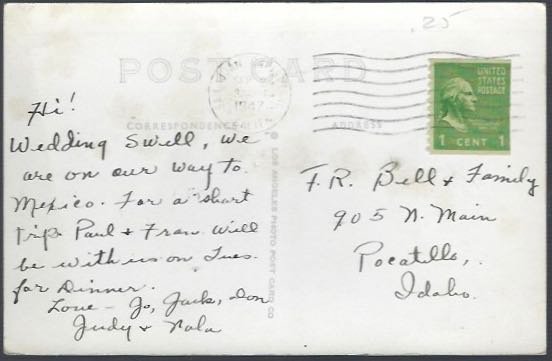 .25
POST CARD
1947
CORRESPONDENCE
ADDRESS
UNITED
STATES
POSTAGE
1 CENT 1
LOS ANGELES PHOTO POST CARD CO
Hi!
Wedding Swell, we
are on our way to
Mexico. For a short
trip Paul + Fran will
be with us on Tues.
for Dinner.
Love - Jo, Jack, Don
Judy + Nola
F. R. Bell + Family
905 N. Main
Pocatello,.
Idaho.